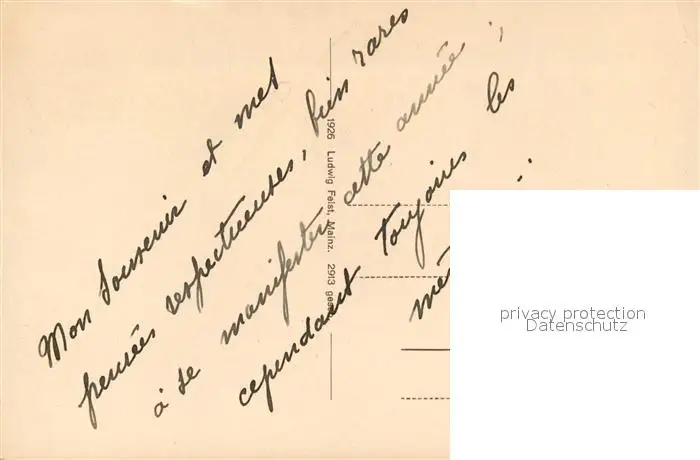 Mon souvenir et mes
pensées respectueuses, bien rares
à se manifester cette année,
cependant toujours les
mê
1926 Ludwig Feist, Mainz. 2913 ges
privacy protection
Datenschutz